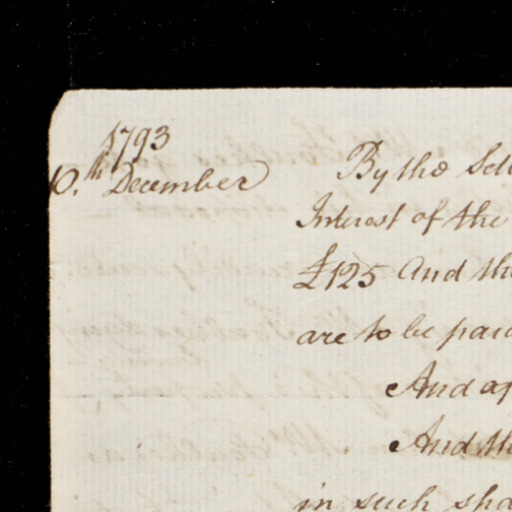 1793
10.th December
By the Sett
Interest of the
£125 And th
are to be paid
And ap
And th
in such sha